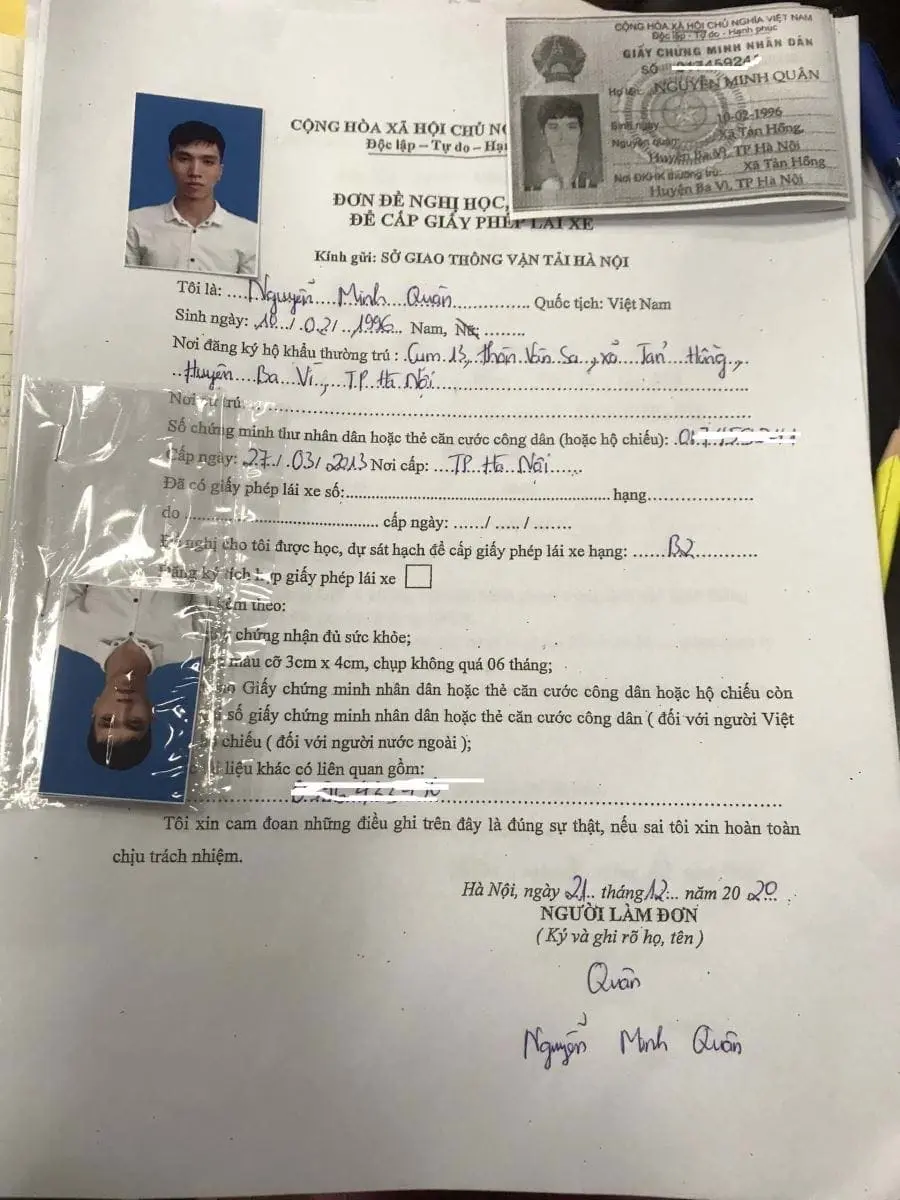 CỘNG HÒA XÃ HỘI CHỦ NGHĨA VIỆT NAM
Độc lập - Tự do - Hạnh phúc
GIẤY CHỨNG MINH NHÂN DÂN
SỐ
Họ tên: NGUYỄN MINH QUÂN
Sinh ngày 10-02-1996
Nguyên quán: Xã Tản Hồng,
Huyện Ba Vì, TP Hà Nội
Nơi ĐKHK thường trú: Xã Tản Hồng
Huyện Ba Vì, TP Hà Nội
CỘNG HÒA XÃ HỘI CHỦ
Độc lập – Tự do –
ĐƠN ĐỀ NGHỊ HỌC,
ĐỂ CẤP GIẤY PHÉP LÁI XE
Kính gửi: SỞ GIAO THÔNG VẬN TẢI HÀ NỘI
Tôi là: ....Nguyễn....Minh...Quân............... Quốc tịch: Việt Nam
Sinh ngày: .10../.02/..1996.. Nam, Nữ: ........
Nơi đăng ký hộ khẩu thường trú : Cụm 13, thôn Vân Sa, xã Tản Hồng,
..Huyện...Ba Vì.., TP. Hà Nội
Nơi cư trú
Số chứng minh thư nhân dân hoặc thẻ căn cước công dân (hoặc hộ chiếu):
Cấp ngày: 27./.03/.2013 Nơi cấp: ...TP. Hà Nội......
Đã có giấy phép lái xe số:.......................................................... hạng....................
do ........................................... cấp ngày: ....../ ..... / .......
Đề nghị cho tôi được học, dự sát hạch để cấp giấy phép lái xe hạng: ......B2...........
Đăng ký tích hợp giấy phép lái xe
kèm theo:
chứng nhận đủ sức khỏe;
màu cỡ 3cm x 4cm, chụp không quá 06 tháng;
Giấy chứng minh nhân dân hoặc thẻ căn cước công dân hoặc hộ chiếu còn
số giấy chứng minh nhân dân hoặc thẻ căn cước công dân ( đối với người Việt
chiếu ( đối với người nước ngoài );
liệu khác có liên quan gồm:
Tôi xin cam đoan những điều ghi trên đây là đúng sự thật, nếu sai tôi xin hoàn toàn
chịu trách nhiệm.
Hà Nội, ngày 21.. tháng 12... năm 20 20
NGƯỜI LÀM ĐƠN
( Ký và ghi rõ họ, tên )
Quân
Nguyễn Minh Quân